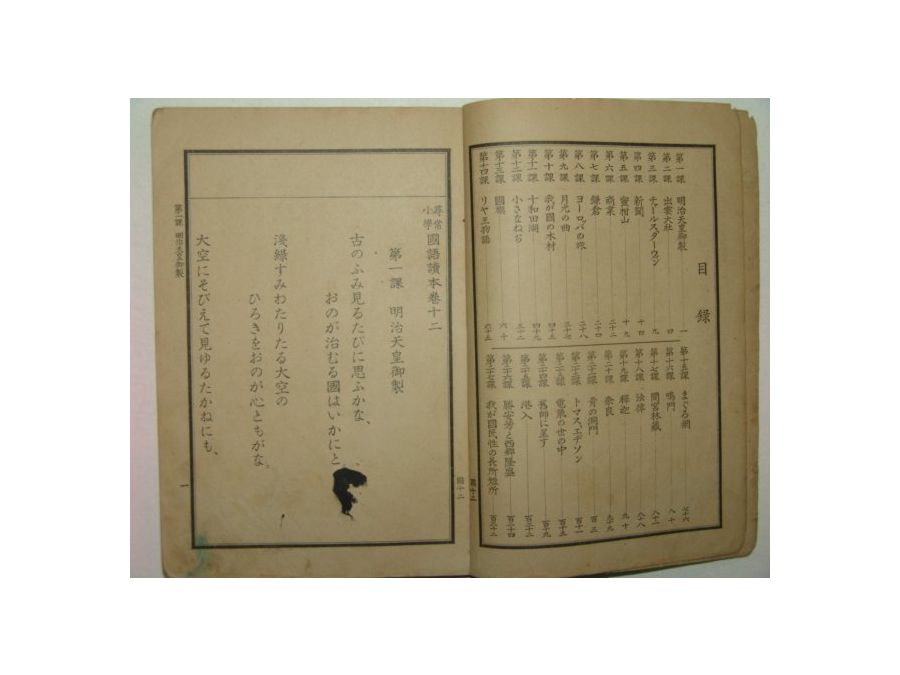 目錄
第一課 明治天皇御製 一
第二課 出雲大社 四
第三課 チャールス、ダーウィン 九
第四課 新聞 十四
第五課 蜜柑山 十九
第六課 商業 二十二
第七課 鎌倉 二十四
第八課 ヨーロッパの旅 二十八
第九課 月光の曲 三十七
第十課 我が國の木材 四十五
第十一課 十和田湖 四十九
第十二課 小さなねぢ 五十二
第十三課 國旗 六十
第十四課 リヤ王物語 六十五
第十五課 まぐろ網 七十六
第十六課 鳴門 八十
第十七課 間宮林藏 八十一
第十八課 法律 八十八
第十九課 釋迦 九十
第二十課 奈良 九十九
第二十一課 青の洞門 百三
第二十二課 トマス、エヂソン 百十一
第二十三課 電氣の世の中 百十五
第二十四課 舊師に呈す 百十九
第二十五課 港入 百二十二
第二十六課 勝安芳と西郷隆盛 百二十四
第二十七課 我が國民性の長所短所 百三十二
尋常小學國語讀本卷十二
第一課 明治天皇御製
古のふみ見るたびに思ふかな、
おのが治むる國はいかにと
淺緑すみわたりたる大空の
ひろきをおのが心ともがな。
大空にそびえて見ゆるたかねにも、
第一課 明治天皇御製
一